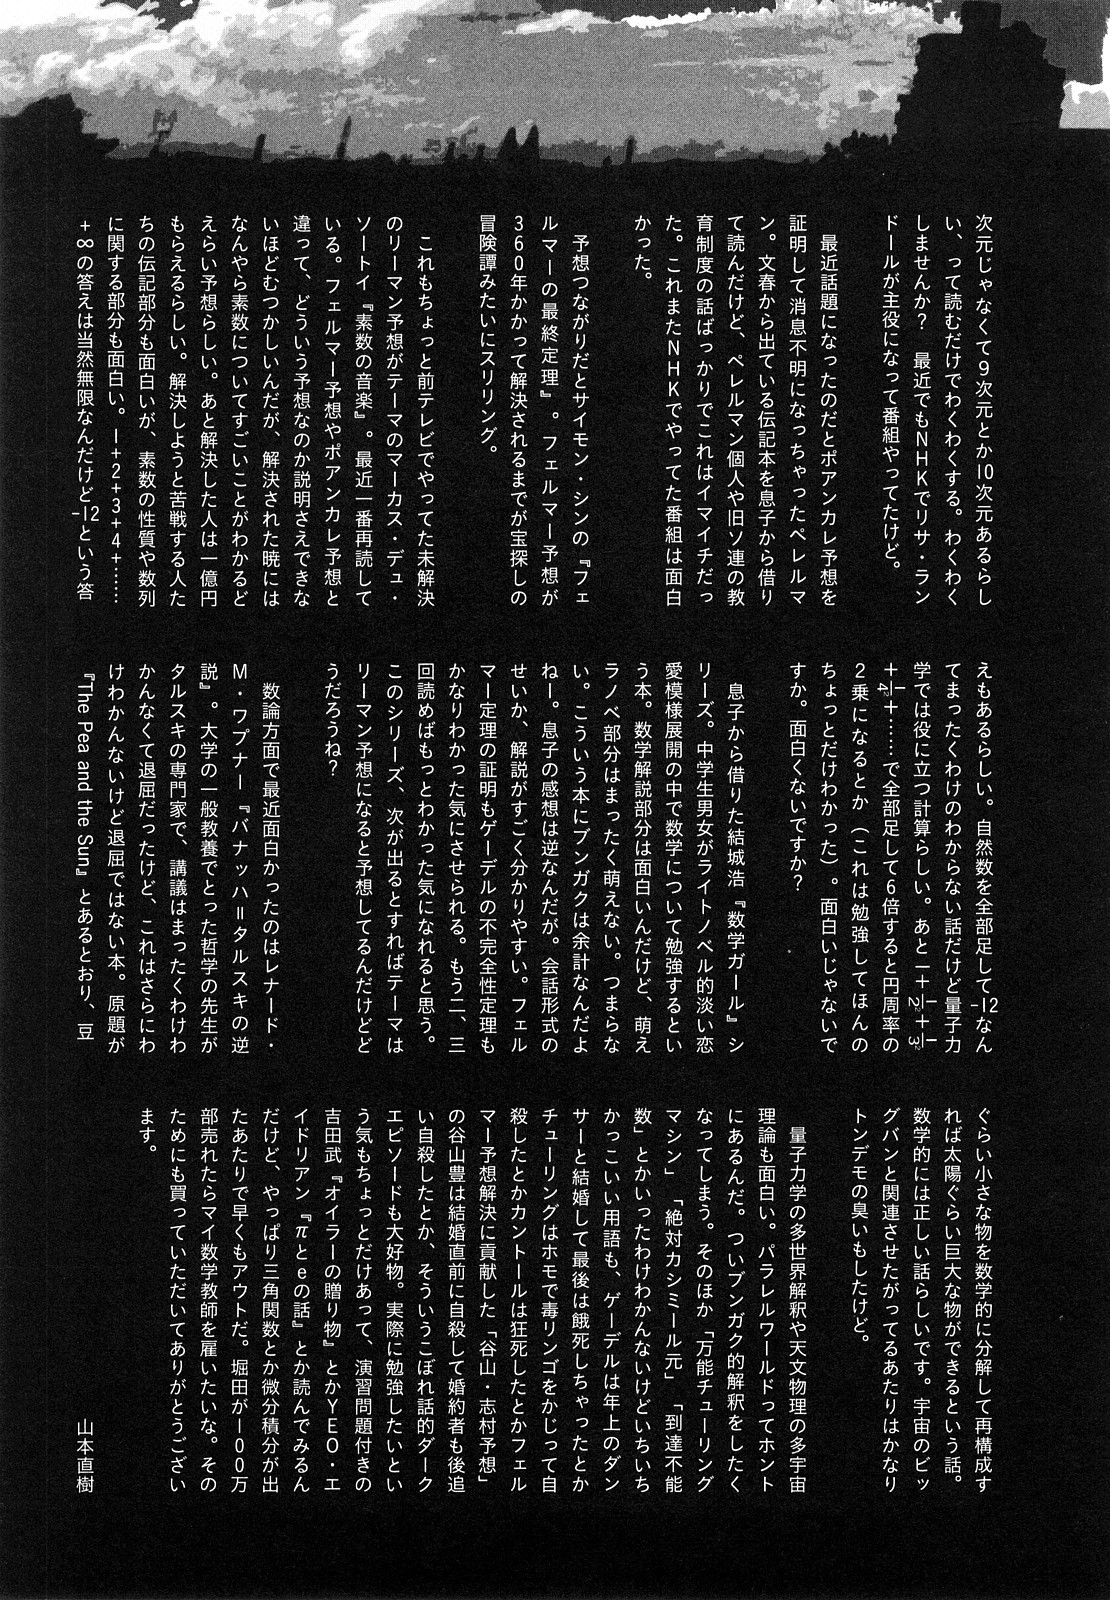 次元じゃなくて9次元とか10次元あるらし
い、って読むだけでわくわくする。わくわく
しませんか？　最近でもNHKでリサ・ラン
ドールが主役になって番組やってたけど。
最近話題になったのだとポアンカレ予想を
証明して消息不明になっちゃったペレルマ
ン。文春から出ている伝記本を息子から借り
て読んだけど、ペレルマン個人や旧ソ連の教
育制度の話ばっかりでこれはイマイチだっ
た。これまたNHKでやってた番組は面白
かった。
予想つながりだとサイモン・シンの『フェ
ルマーの最終定理』。フェルマー予想が
360年かかって解決されるまでが宝探しの
冒険譚みたいにスリリング。
これもちょっと前テレビでやってた未解決
のリーマン予想がテーマのマーカス・デュ・
ソートイ『素数の音楽』。最近一番再読して
いる。フェルマー予想やポアンカレ予想と
違って、どういう予想なのか説明さえできな
いほどむつかしいんだが、解決された暁には
なんやら素数についてすごいことがわかるど
えらい予想らしい。あと解決した人は一億円
もらえるらしい。解決しようと苦戦する人た
ちの伝記部分も面白いが、素数の性質や数列
に関する部分も面白い。1+2+3+4+……
+∞の答えは当然無限なんだけど-12という答
えもあるらしい。自然数を全部足して-12なん
てまったくわけのわからない話だけど量子力
学では役に立つ計算らしい。あと1+1/2²+1/3²
+1/4²+……で全部足して6倍すると円周率の
2乗になるとか（これは勉強してほんの
ちょっとだけわかった）。面白いじゃないで
すか。面白くないですか？
息子から借りた結城浩『数学ガール』シ
リーズ。中学生男女がライトノベル的淡い恋
愛模様展開の中で数学について勉強するとい
う本。数学解説部分は面白いんだけど、萌え
ラノベ部分はまったく萌えない。つまらな
い。こういう本にブンガクは余計なんだよ
ねー。息子の感想は逆なんだが。会話形式の
せいか、解説がすごく分かりやすい。フェル
マー定理の証明もゲーデルの不完全性定理も
かなりわかった気にさせられる。もう二、三
回読めばもっとわかった気になれると思う。
このシリーズ、次が出るとすればテーマは
リーマン予想になると予想してるんだけどど
うだろうね？
数論方面で最近面白かったのはレナード・
M・ワプナー『バナッハ＝タルスキの逆
説』。大学の一般教養でとった哲学の先生が
タルスキの専門家で、講義はまったくわけわ
かんなくて退屈だったけど、これはさらにわ
けわかんないけど退屈ではない本。原題が
『The Pea and the Sun』とあるとおり、豆
ぐらい小さな物を数学的に分解して再構成す
れば太陽ぐらい巨大な物ができるという話。
数学的には正しい話らしいです。宇宙のビッ
グバンと関連させたがってるあたりはかなり
トンデモの臭いもしたけど。
量子力学の多世界解釈や天文物理の多宇宙
理論も面白い。パラレルワールドってホント
にあるんだ。ついブンガク的解釈をしたく
なってしまう。そのほか「万能チューリング
マシン」「絶対カシミール元」「到達不能
数」とかいったわけわかんないけどいちいち
かっこいい用語も、ゲーデルは年上のダン
サーと結婚して最後は餓死しちゃったとか
チューリングはホモで毒リンゴをかじって自
殺したとかカントールは狂死したとかフェル
マー予想解決に貢献した「谷山・志村予想」
の谷山豊は結婚直前に自殺して婚約者も後追
い自殺したとか、そういうこぼれ話的ダーク
エピソードも大好物。実際に勉強したいとい
う気もちょっとだけあって、演習問題付きの
吉田武『オイラーの贈り物』とかYEO・エ
イドリアン『πとeの話』とか読んでみるん
だけど、やっぱり三角関数とか微分積分が出
たあたりで早くもアウトだ。堀田が100万
部売れたらマイ数学教師を雇いたいな。その
ためにも買っていただいてありがとうござい
ます。
山本直樹